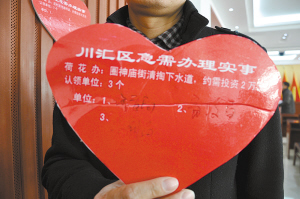 川汇区急需办理实事
荷花办：圈神庙街清掏下水道，约需投资2万
认领单位：3个
单位：1、
2、
3、